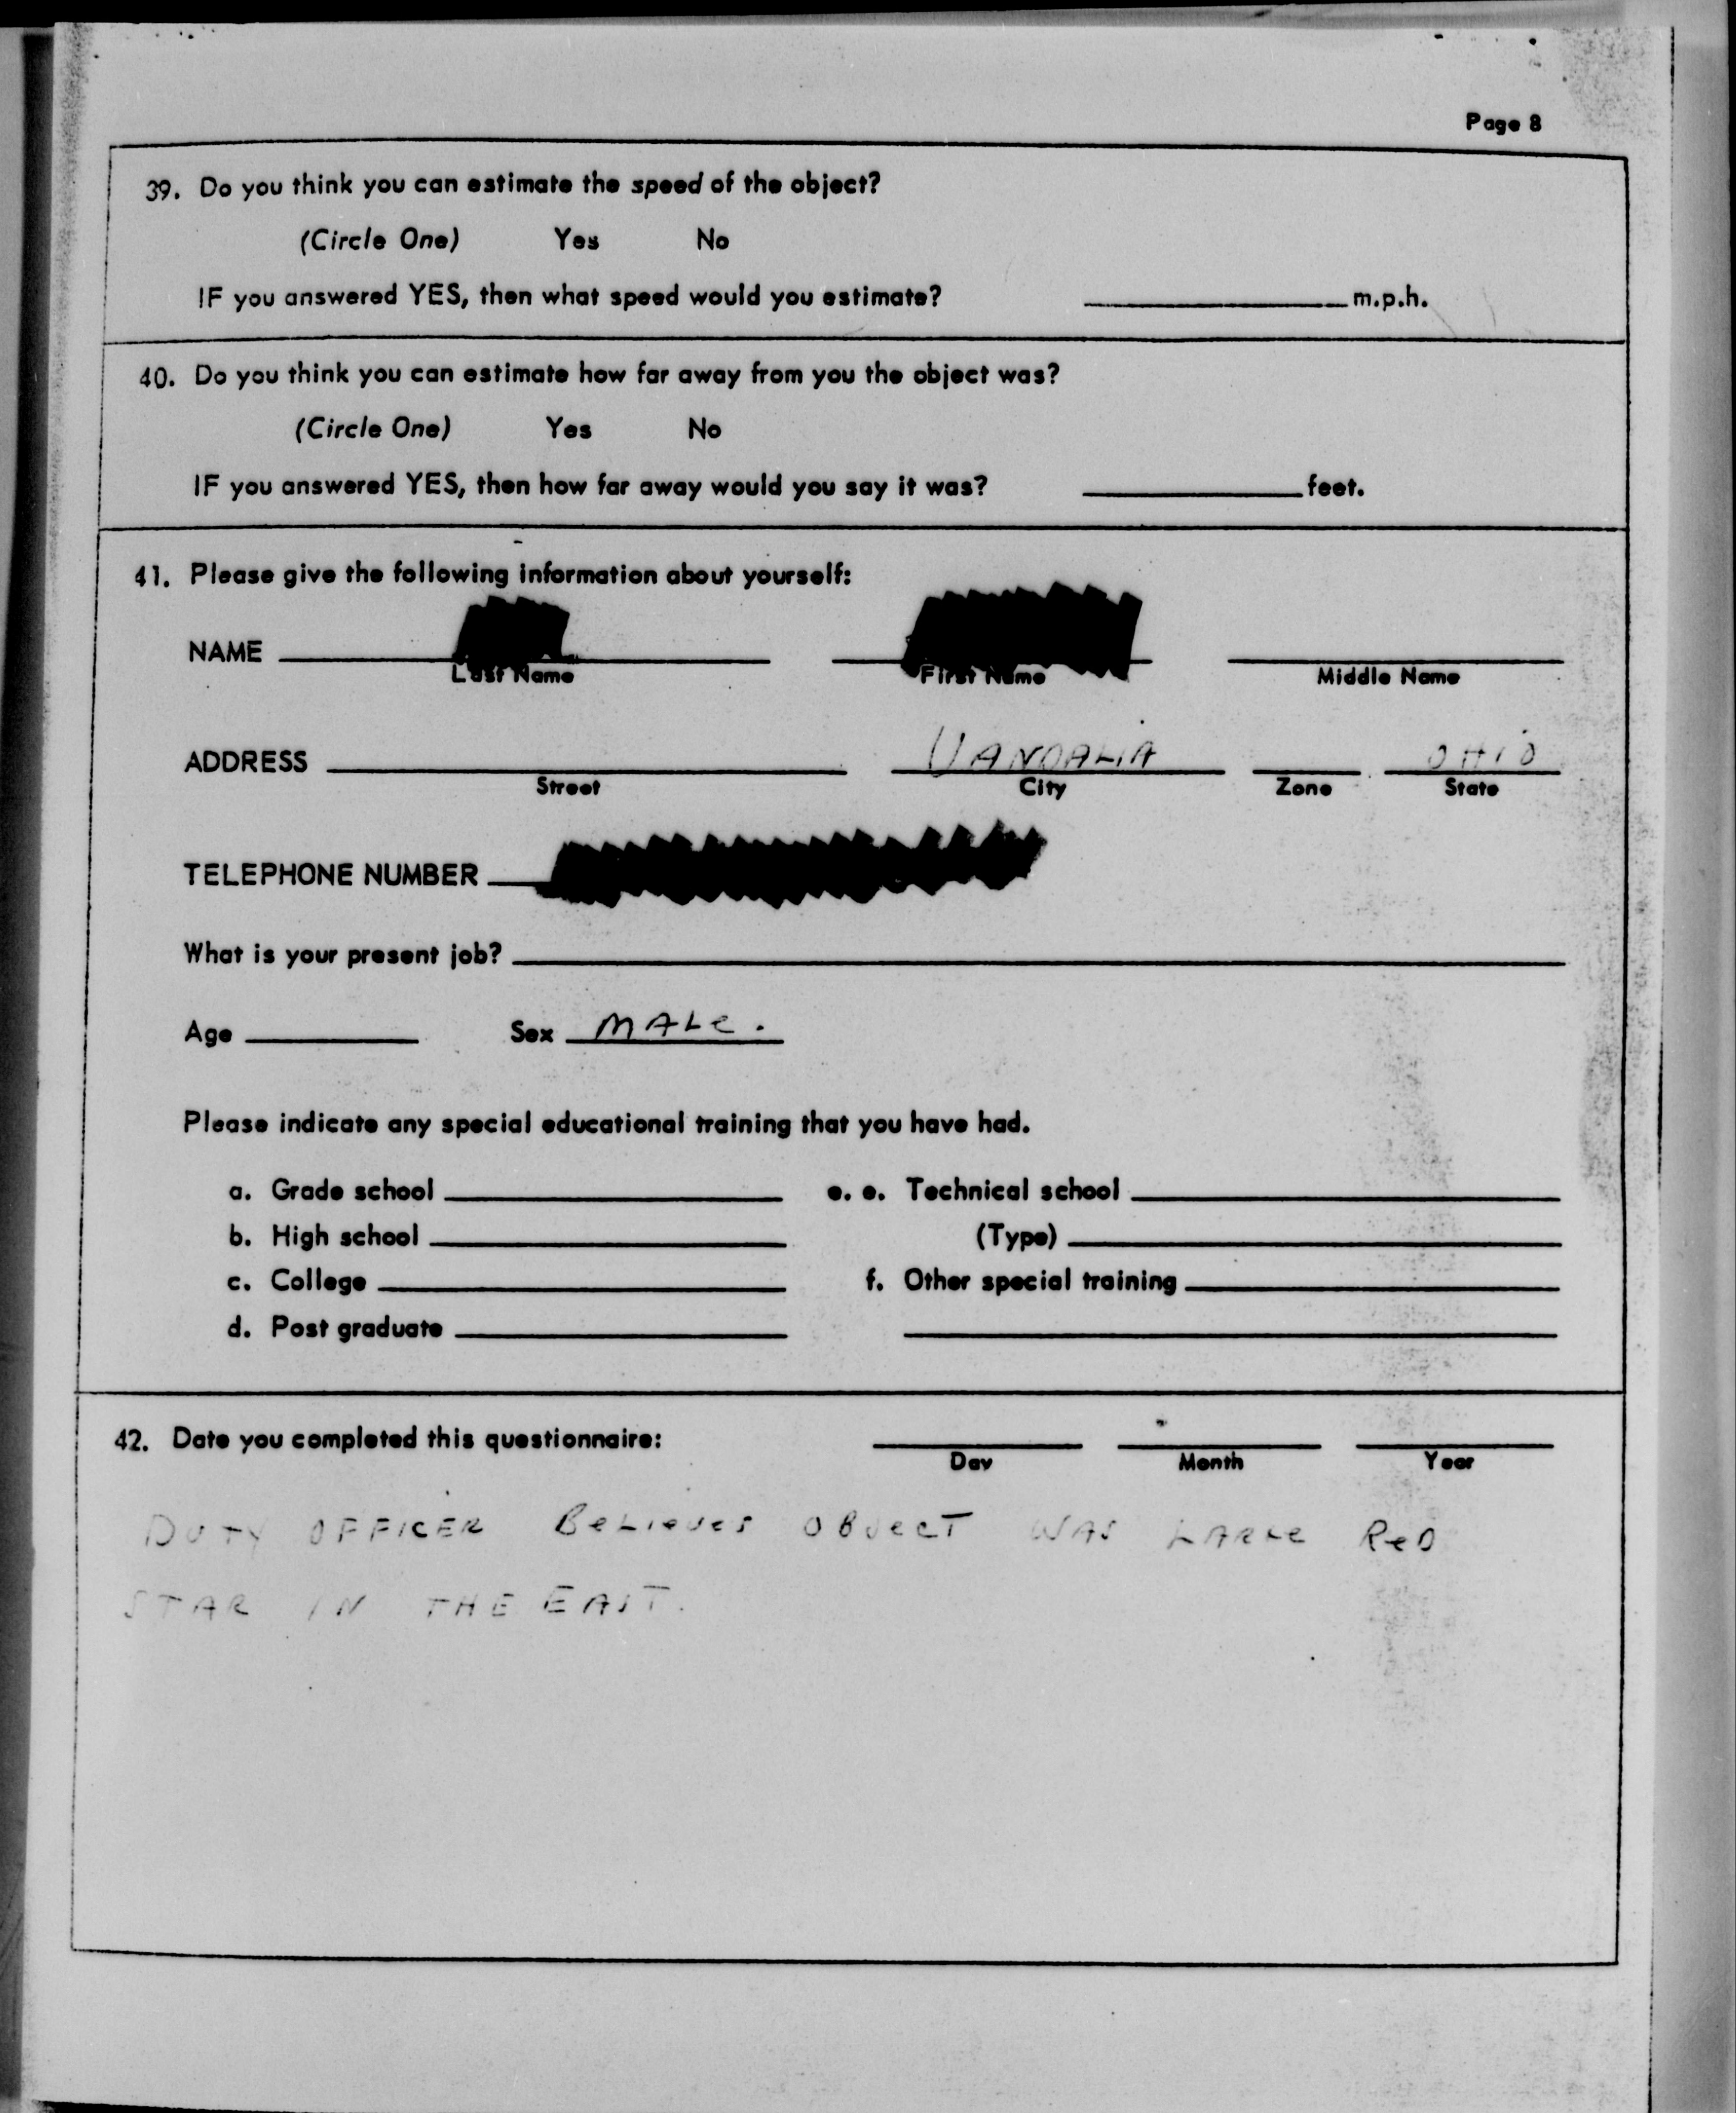 Page 8
39. Do you think you can estimate the speed of the object?
(Circle One) Yes No
IF you answered YES, then what speed would you estimate? ____ m.p.h.
40. Do you think you can estimate how far away from you the object was?
(Circle One) Yes No
IF you answered YES, then how far away would you say it was? ____ feet.
41. Please give the following information about yourself:
NAME ____
Last Name First Name Middle Name
ADDRESS ____ VANDALIA ____ OHIO
Street City Zone State
TELEPHONE NUMBER ____
What is your present job? ____
Age ____ Sex MALE.
Please indicate any special educational training that you have had.
a. Grade school ____ e. e. Technical school ____
b. High school ____ (Type) ____
c. College ____ f. Other special training ____
d. Post graduate ____
42. Date you completed this questionnaire: ____
Day Month Year
DUTY OFFICER BELIEVES OBJECT WAS LARGE RED
STAR IN THE EAST.